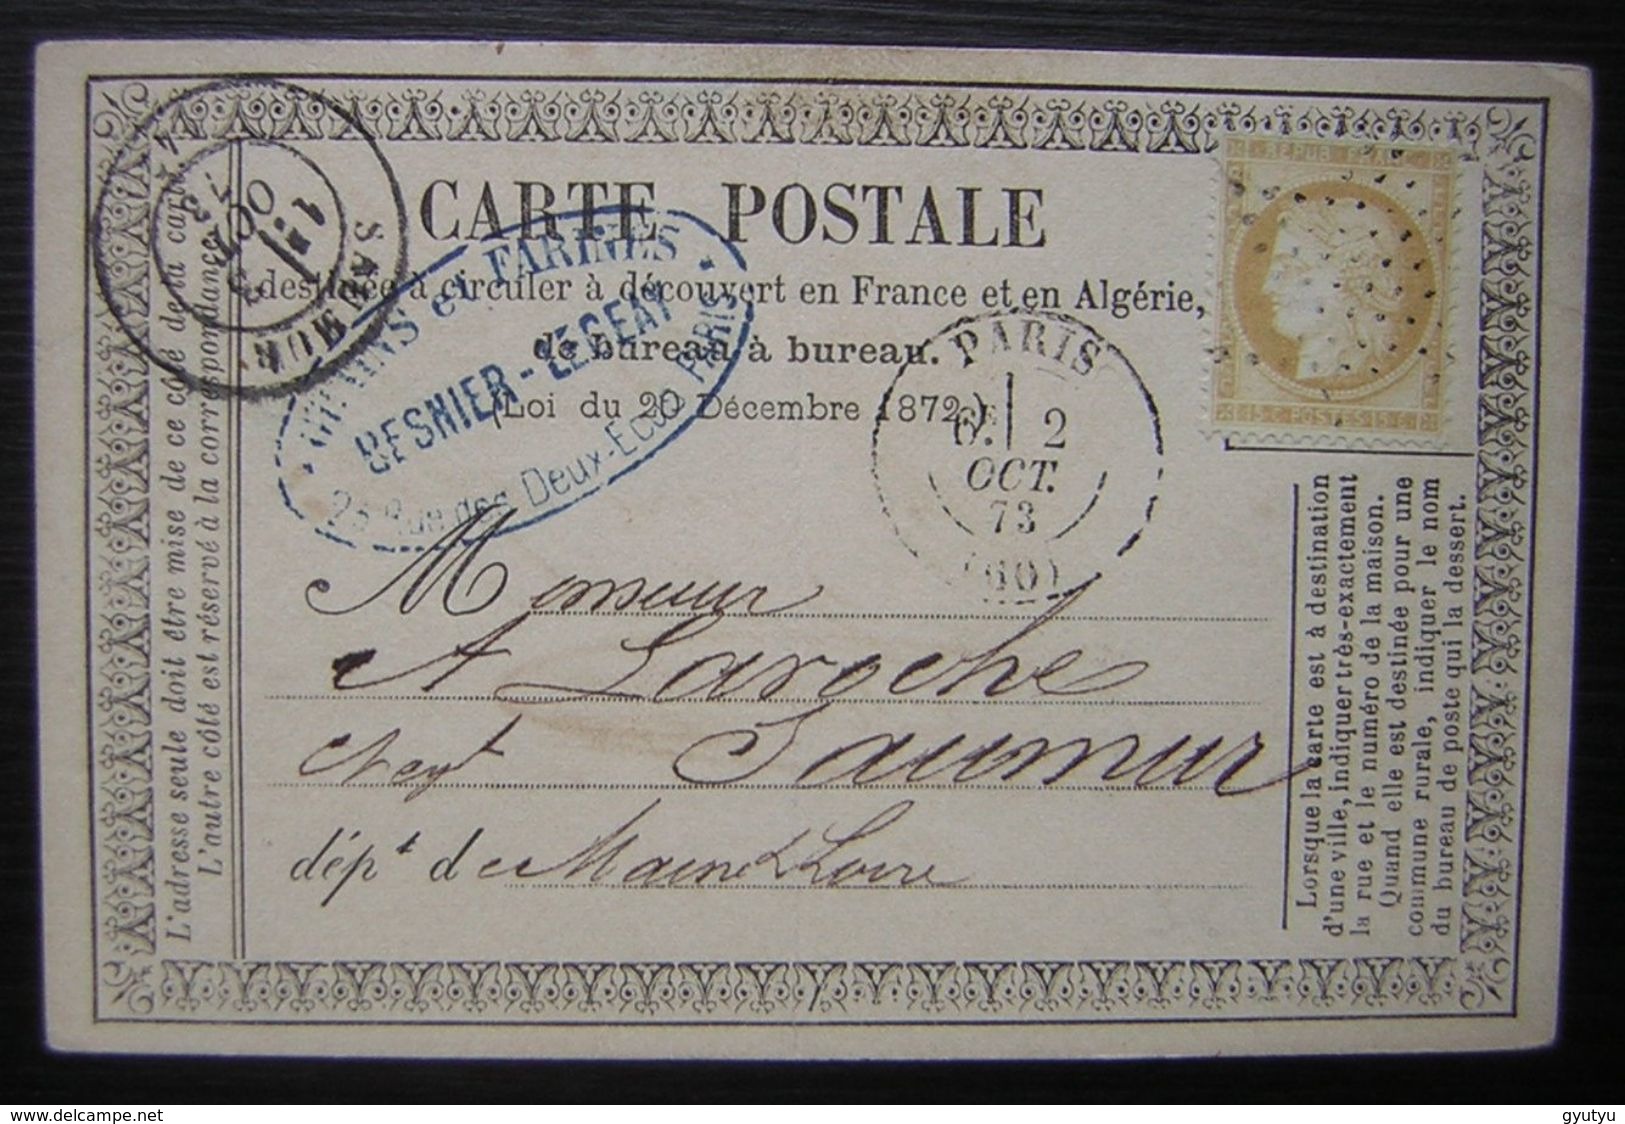 CARTE POSTALE
destinée à circuler à découvert en France et en Algérie,
de bureau à bureau.
(Loi du 20 Décembre 1872.)
REPUB. FRANC.
15 C. POSTES 15 C.
SAUMUR
OCT.
GRAINS et FARINES
BESNIER-LEGEAY
25 Rue des Deux-Ecus PARIS
PARIS
6E 2
OCT.
73
(60)
Monsieur
A Laroche
Negt Saumur
dépt de Maine & Loire
L'adresse seule doit être mise de ce côté de la carte.
L'autre côté est réservé à la correspondance.
Lorsque la carte est à destination
d'une ville, indiquer très-exactement
la rue et le numéro de la maison.
Quand elle est destinée pour une
commune rurale, indiquer le nom
du bureau de poste qui la dessert.
www.delcampe.net
gyutyu